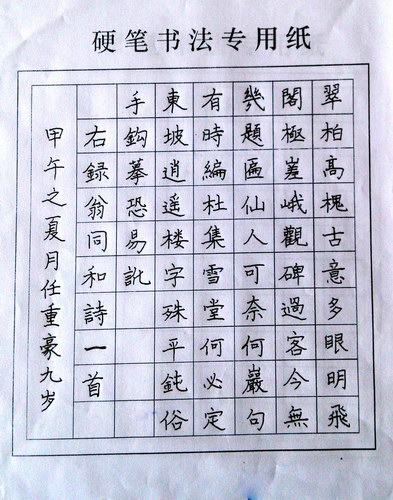 硬笔书法专用纸
翠柏高槐古意多眼明飛
閣極嵳峨觀碑過客今無
幾題匾仙人可奈何巖句
有時編杜集雪堂何必定
東坡逍遥楼字殊平鈍俗
手鈎摹恐易訛
右録翁同和詩一首
甲午之夏月任重豪九岁